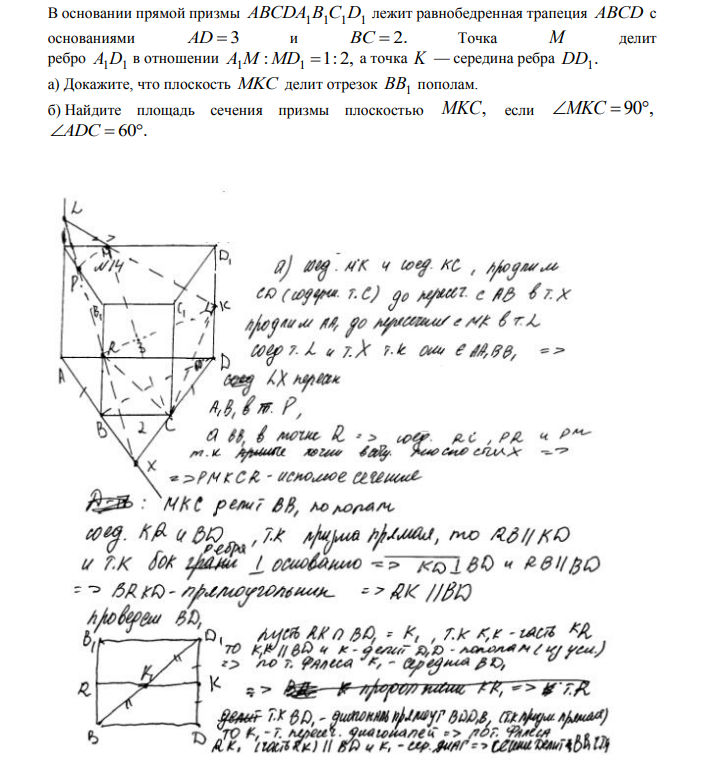 В основании прямой призмы ABCDA₁B₁C₁D₁ лежит равнобедренная трапеция ABCD с
основаниями AD = 3 и BC = 2. Точка M делит
ребро A₁D₁ в отношении A₁M : MD₁ = 1 : 2, а точка K — середина ребра DD₁.
а) Докажите, что плоскость MKC делит отрезок BB₁ пополам.
б) Найдите площадь сечения призмы плоскостью MKC, если ∠MKC = 90°,
∠ADC = 60°.
L
M
D₁
№14
P
B₁
C₁
K
R
3
A
D
B
2
C
X
а) соед. MK и соед. KC, продлим
CD (содерж. т. C) до пересеч. с AB в т. X
продлим AA₁ до пересечения с MK в т. L
соед т. L и т. X т.к они ∈ AA₁BB₁ =>
соед LX пересек
A₁B₁ в т. P,
а BB₁ в точке R => соед. RC, PR и PM
т.к =>
=> PMKCR - искомое сечение
: MKC делит BB₁ пополам
соед. KR и BD, т.к призма прямая, то RB || KD
и т.к бок ребра ⊥ основанию => KD ⊥ BD и RB || BD
=> BRKD - прямоугольник => RK || BD
проведем BD₁
B₁
D₁
R
K₁
K
B
D
пусть RK ∩ BD₁ = K₁, т.к K₁K - часть KR
то K₁K || BD и K - делит D₁D - пополам (из усл.)
=> по т. Фалеса K₁ - середина BD₁
=> KK₁ => т. R
т.к BD₁ - диагональ прямоуг BDD₁B₁ (т.к призм прямая)
то K₁ - т. пересеч. диагоналей => по т. Фалеса
RK₁ (часть RK) || BD и K₁ - сер. диаг => сечение делит BB₁